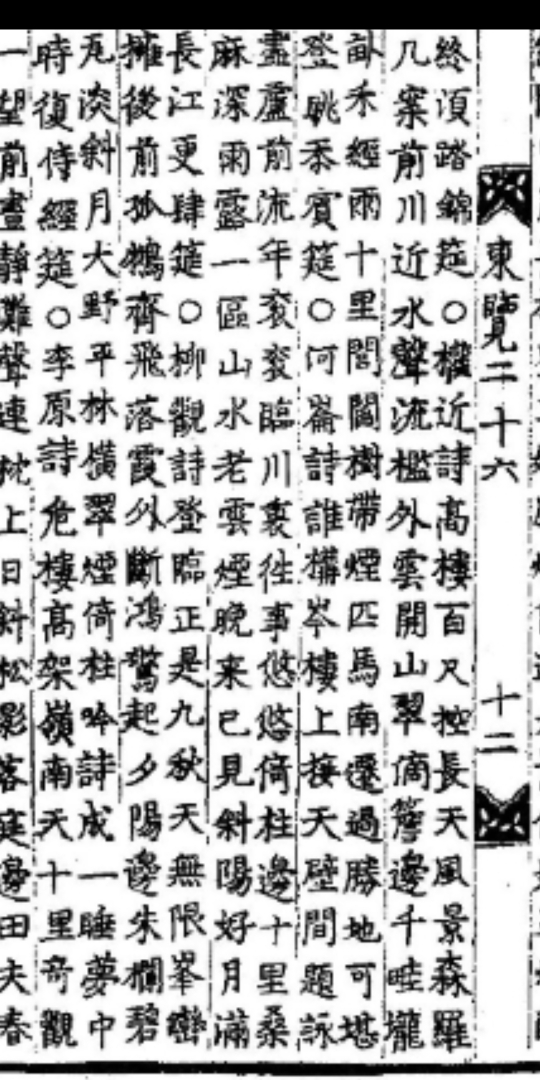 東覽二十六
十二
終須踏錦筵○權近詩高樓百尺控長天風景森羅
几案前川近水聲流檻外雲開山翠滴簷邊千畦壠
畝禾經雨十里閭閻樹帶煙匹馬南遷過勝地可堪
登眺忝賓筵○河崙詩誰構岑樓上接天壁間題詠
盡盧前流年袞袞臨川裏往事悠悠倚柱邊十里桑
麻深雨露一區山水老雲煙晚来已見斜陽好月滿
長江更肆筵○柳觀詩登臨正是九秋天無限峯巒
擁後前孤鶩齊飛落霞外斷鴻驚起夕陽邊朱欄碧
瓦淡斜月大野平林橫翠煙倚柱吟詩成一睡夢中
時復侍經筵○李原詩危樓高架嶺南天十里奇觀
一望前晝靜灘聲連枕上日斜松影落庭邊田夫春